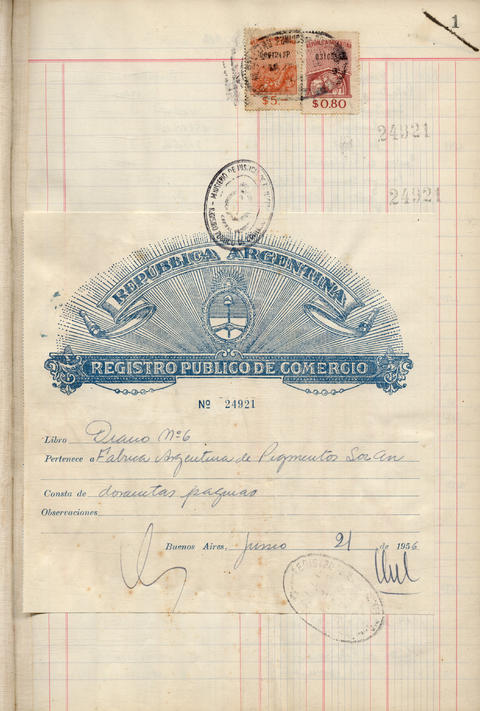 1
$5
$0.80
24921
24921
REPUBLICA ARGENTINA
REGISTRO PUBLICO DE COMERCIO
Nº 24921
Libro Diario Nº6
Pertenece a Fabrica Argentina de Pigmentos
Consta de doscientas paginas
Observaciones
Buenos Aires, Junio 21 de 1956